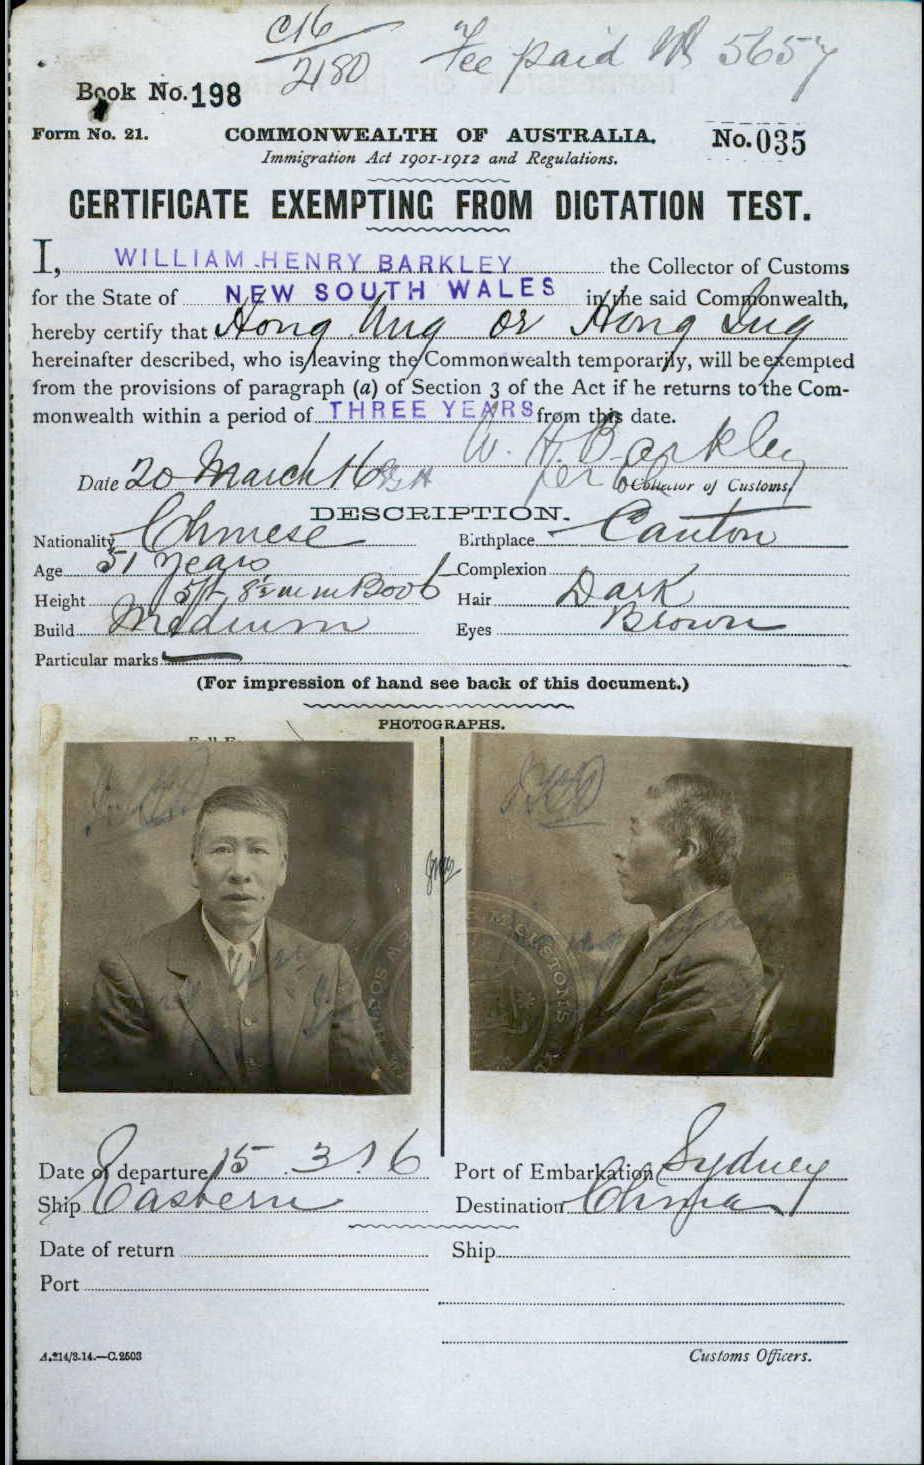 C16/2180 Fee paid 5657
Book No. 198
Form No. 21. COMMONWEALTH OF AUSTRALIA. No. 035
Immigration Act 1901-1912 and Regulations.
CERTIFICATE EXEMPTING FROM DICTATION TEST.
I, WILLIAM HENRY BARKLEY the Collector of Customs
for the State of NEW SOUTH WALES in the said Commonwealth,
hereby certify that Hong or Hong
hereinafter described, who is leaving the Commonwealth temporarily, will be exempted
from the provisions of paragraph (a) of Section 3 of the Act if he returns to the Com-
monwealth within a period of THREE YEARS from this date.
W. H. Barkley
Date 20 March 16 per Collector of Customs.
DESCRIPTION.
Nationality Chinese Birthplace Canton
Age 51 years Complexion
Height 5ft 8½ in in Boots Hair Dark
Build Medium Eyes Brown
Particular marks —
(For impression of hand see back of this document.)
PHOTOGRAPHS.
CUSTOMS
Date of departure 15.3.16 Port of Embarkation Sydney
Ship Eastern Destination China
Date of return Ship
Port
A.214/3.14.—C.2503 Customs Officers.